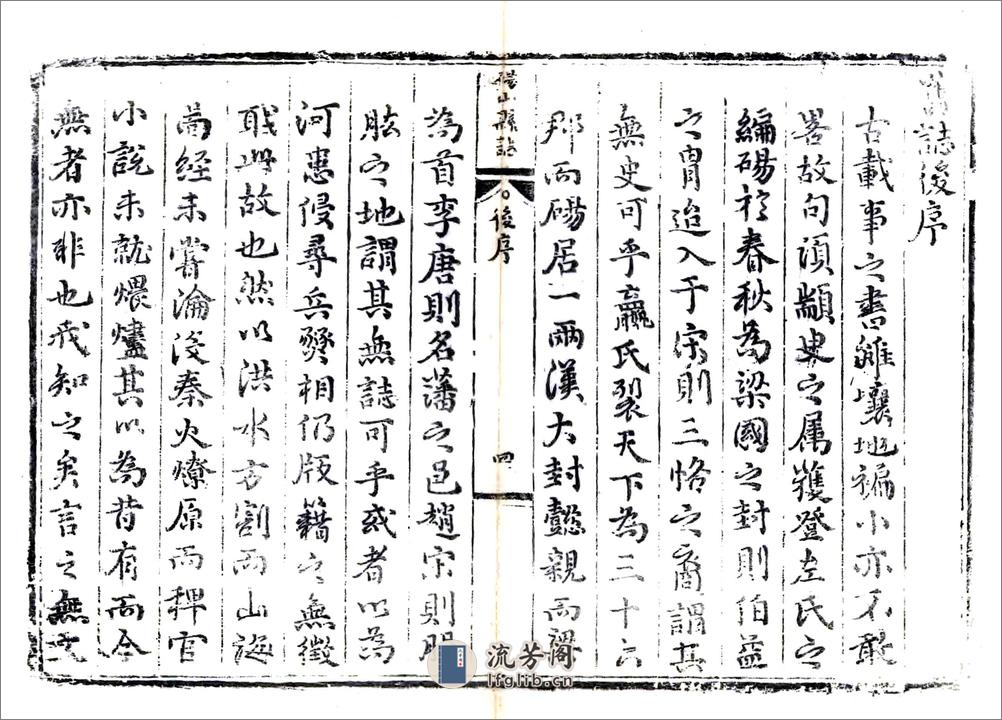 誌後序
古載事之書雖壤地褊小亦不敢
畧故句須顓臾之属獲登左氏之
編碭於春秋為梁國之封則伯益
之胄迨入于宋則三恪之裔謂其
無史可乎嬴氏裂天下為三十六
郡而碭居一兩漢大封懿親而梁
碭山縣誌
後序
四
為首李唐則名藩之邑趙宋則
肱之地謂其無誌可乎或者以為
河患侵尋兵燹相仍版籍之無徵
職此故也然以洪水方割而山海
啚經未嘗淪没秦火燎原而稗官
小說未就煨燼其以為昔有而今
無者亦非也我知之矣言之無文
流芳阁
lfglib.cn